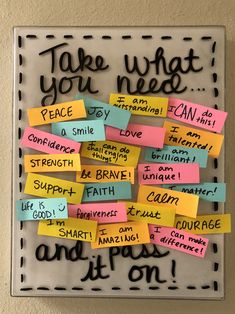 Take what
you need...
PEACE
JOY
I am
outstanding!
I CAN do
this!
A Smile
LOVE
CONFIDENCE
I am
talented!
STRENGTH
I can do
challenging
things!
I am
brilliant!
BE BRAVE!
I am
unique!
CALM
Support
FAITH
I matter!
Strength
Life is
GOOD!
Forgiveness
trust
COURAGE
I am
SMART!
I am
AMAZING!
I can make
a difference!
and pass
it on!